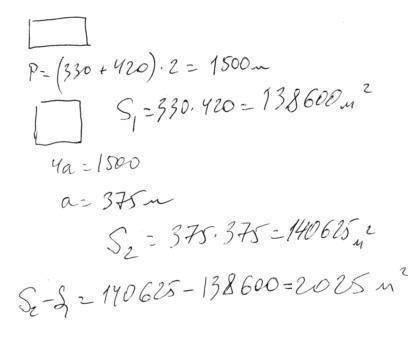 P=(330+420)·2=1500м
S₁=330·420=138600м²
4a=1500
a=375м
S₂=375·375=140625м²
S₂-S₁=140625-138600=2025 м²